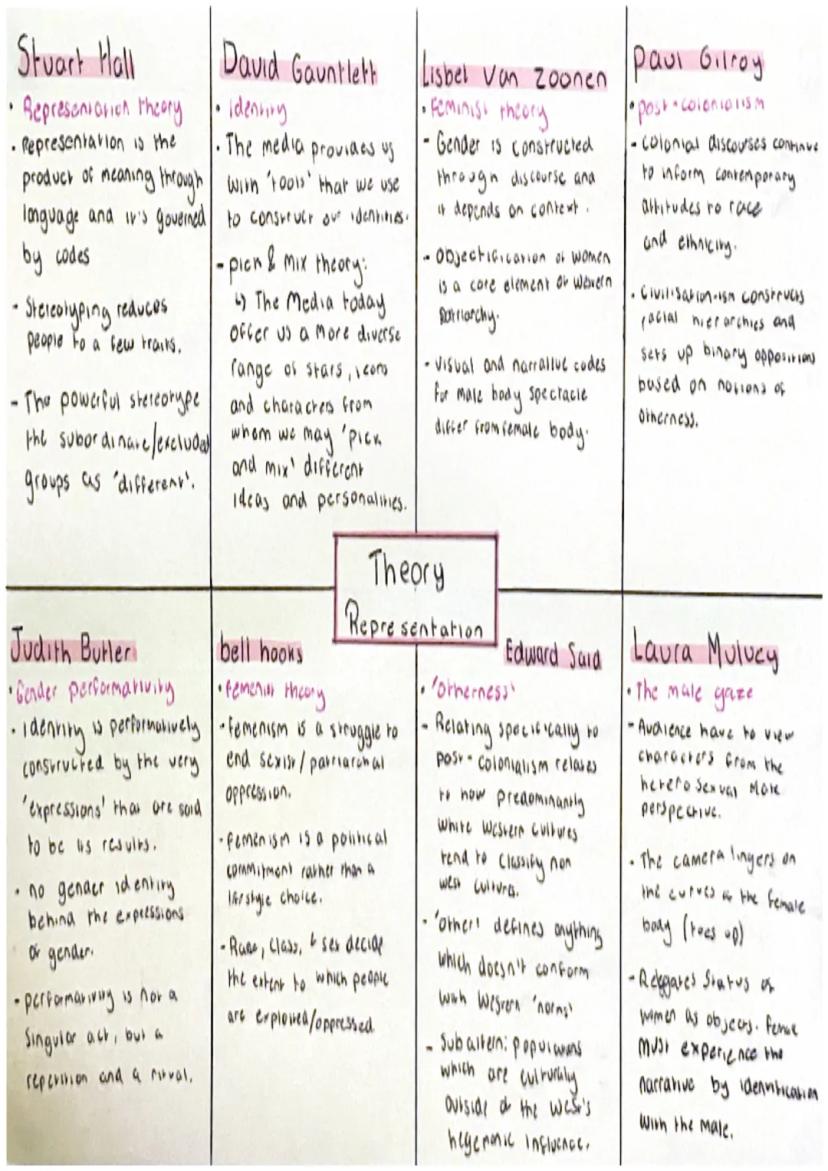 Stuart Hall
• Representation theory
• Representation is the
product of meaning through
language and it's governed
by codes
- Stereotyping reduces
people to a few traits.
- The powerful stereotype
the subordinate/excluded
groups as 'different'.
David Gauntlett
• identity
• The media provides us
with 'tools' that we use
to construct our identities.
- pick & mix theory:
↳ The Media today
offer us a more diverse
range of stars, icons
and characters from
whom we may 'pick
and mix' different
ideas and personalities.
Lisbet Van Zoonen
• Feminist theory
- Gender is constructed
through discourse and
it depends on context.
- Objectification of women
is a core element of western
patriarchy.
- visual and narrative codes
for male body spectacle
differ from female body.
Paul Gilroy
• post-colonialism
- colonial discourses continue
to inform contemporary
attitudes to race
and ethnicity.
• Civilisation-ism constructs
racial hierarchies and
sets up binary oppositions
based on notions of
otherness.
Theory
Representation
Judith Butler
• Gender performativity
• identity is performatively
constructed by the very
'expressions' that are said
to be its results.
• no gender identity
behind the expressions
of gender.
- performativity is not a
singular act, but a
repetition and a ritual.
bell hooks
• femenist theory
• femenism is a struggle to
end sexist/patriarchal
oppression.
• femenism is a political
commitment rather than a
lifestyle choice.
• Race, class, & sex decide
the extent to which people
are exploited/oppressed
Edward Said
• 'otherness'
- Relating specifically to
post-colonialism relates
to how predominantly
white western cultures
tend to classify non
west cultures.
• 'other' defines anything
which doesn't conform
with western 'norms'
- Subaltern: populations
which are culturally
outside of the west's
hegemonic influence.
Laura Mulvey
• The male gaze
- Audience have to view
characters from the
heterosexual male
perspective.
• The camera lingers on
the curves of the female
body (toes up)
- Relegates status of
women as objects. female
must experience the
narrative by identification
with the male.